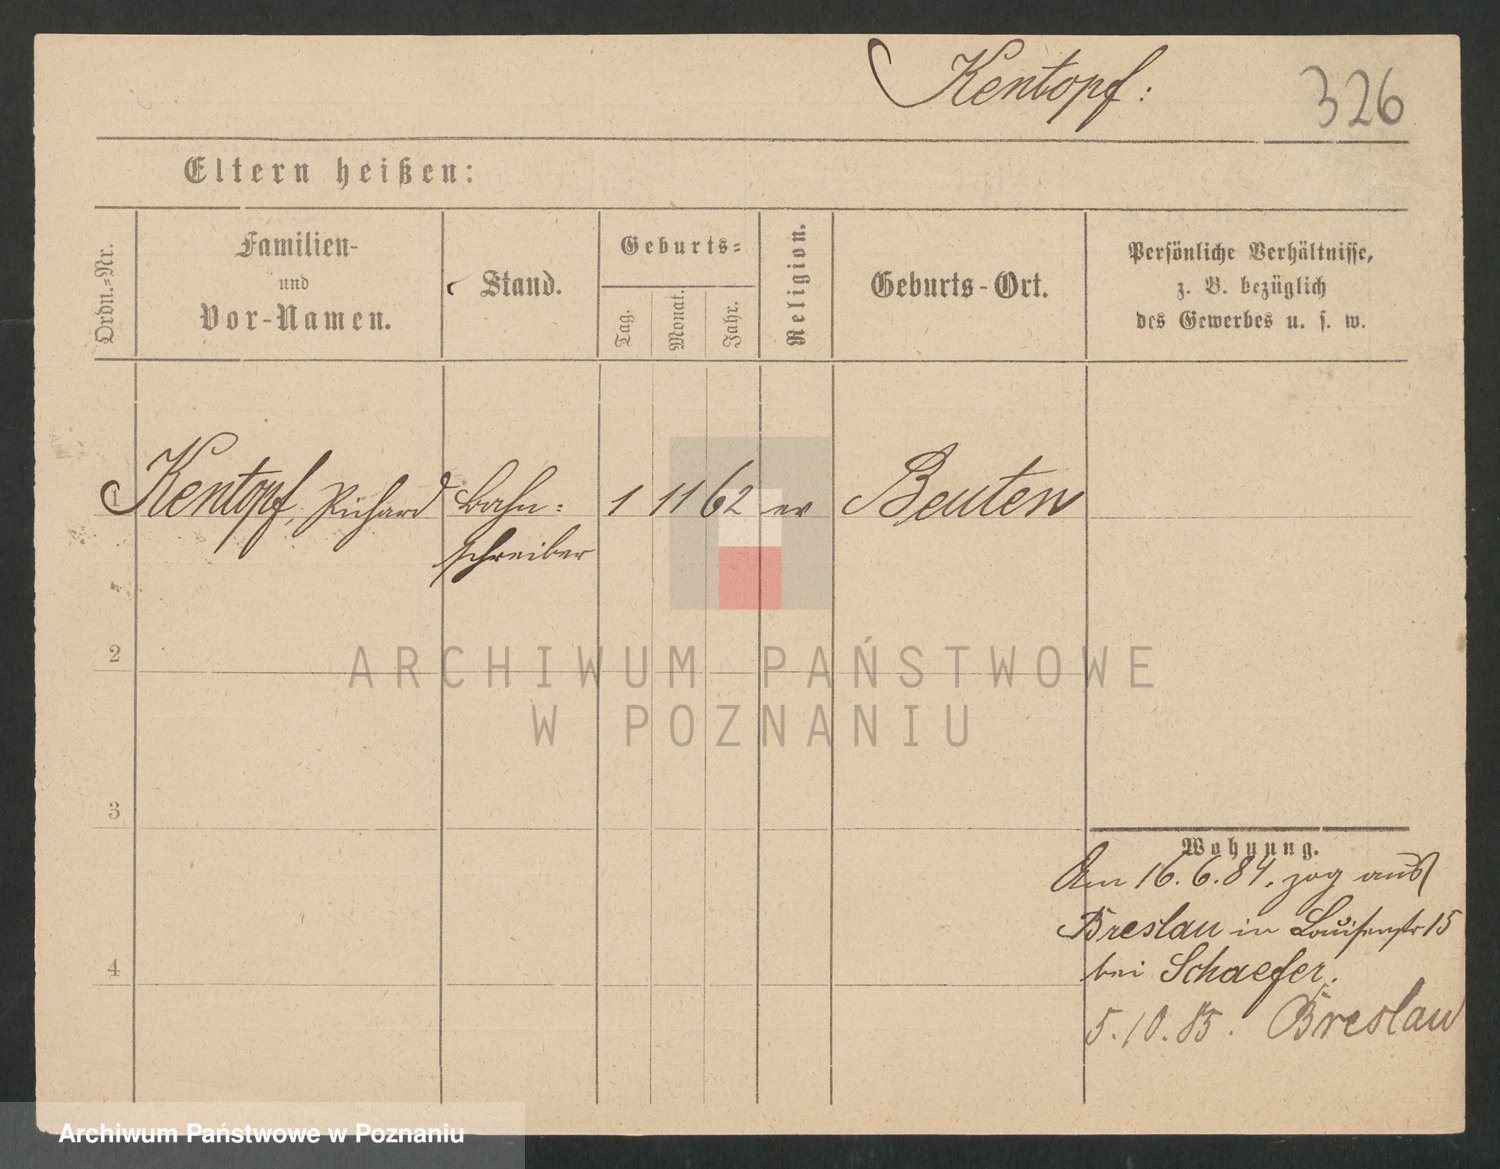 Kentopf:
326
Eltern heißen:
Ordn.-Nr.
Familien-
und
Vor-Namen.
Stand.
Geburts-
Tag.
Monat.
Jahr.
Religion.
Geburts-Ort.
Persönliche Verhältnisse,
z. B. bezüglich
des Gewerbes u. s. w.
1 Kentopf, Richard Bahn= 1 11 62 ev Beuten
schreiber
2
ARCHIWUM PAŃSTWOWE
W POZNANIU
3
Wohnung.
Am 16.6.84. zog aus
Breslau in Louisenstr 15
4
bei Schaefer.
5.10.85. Breslau
Archiwum Państwowe w Poznaniu